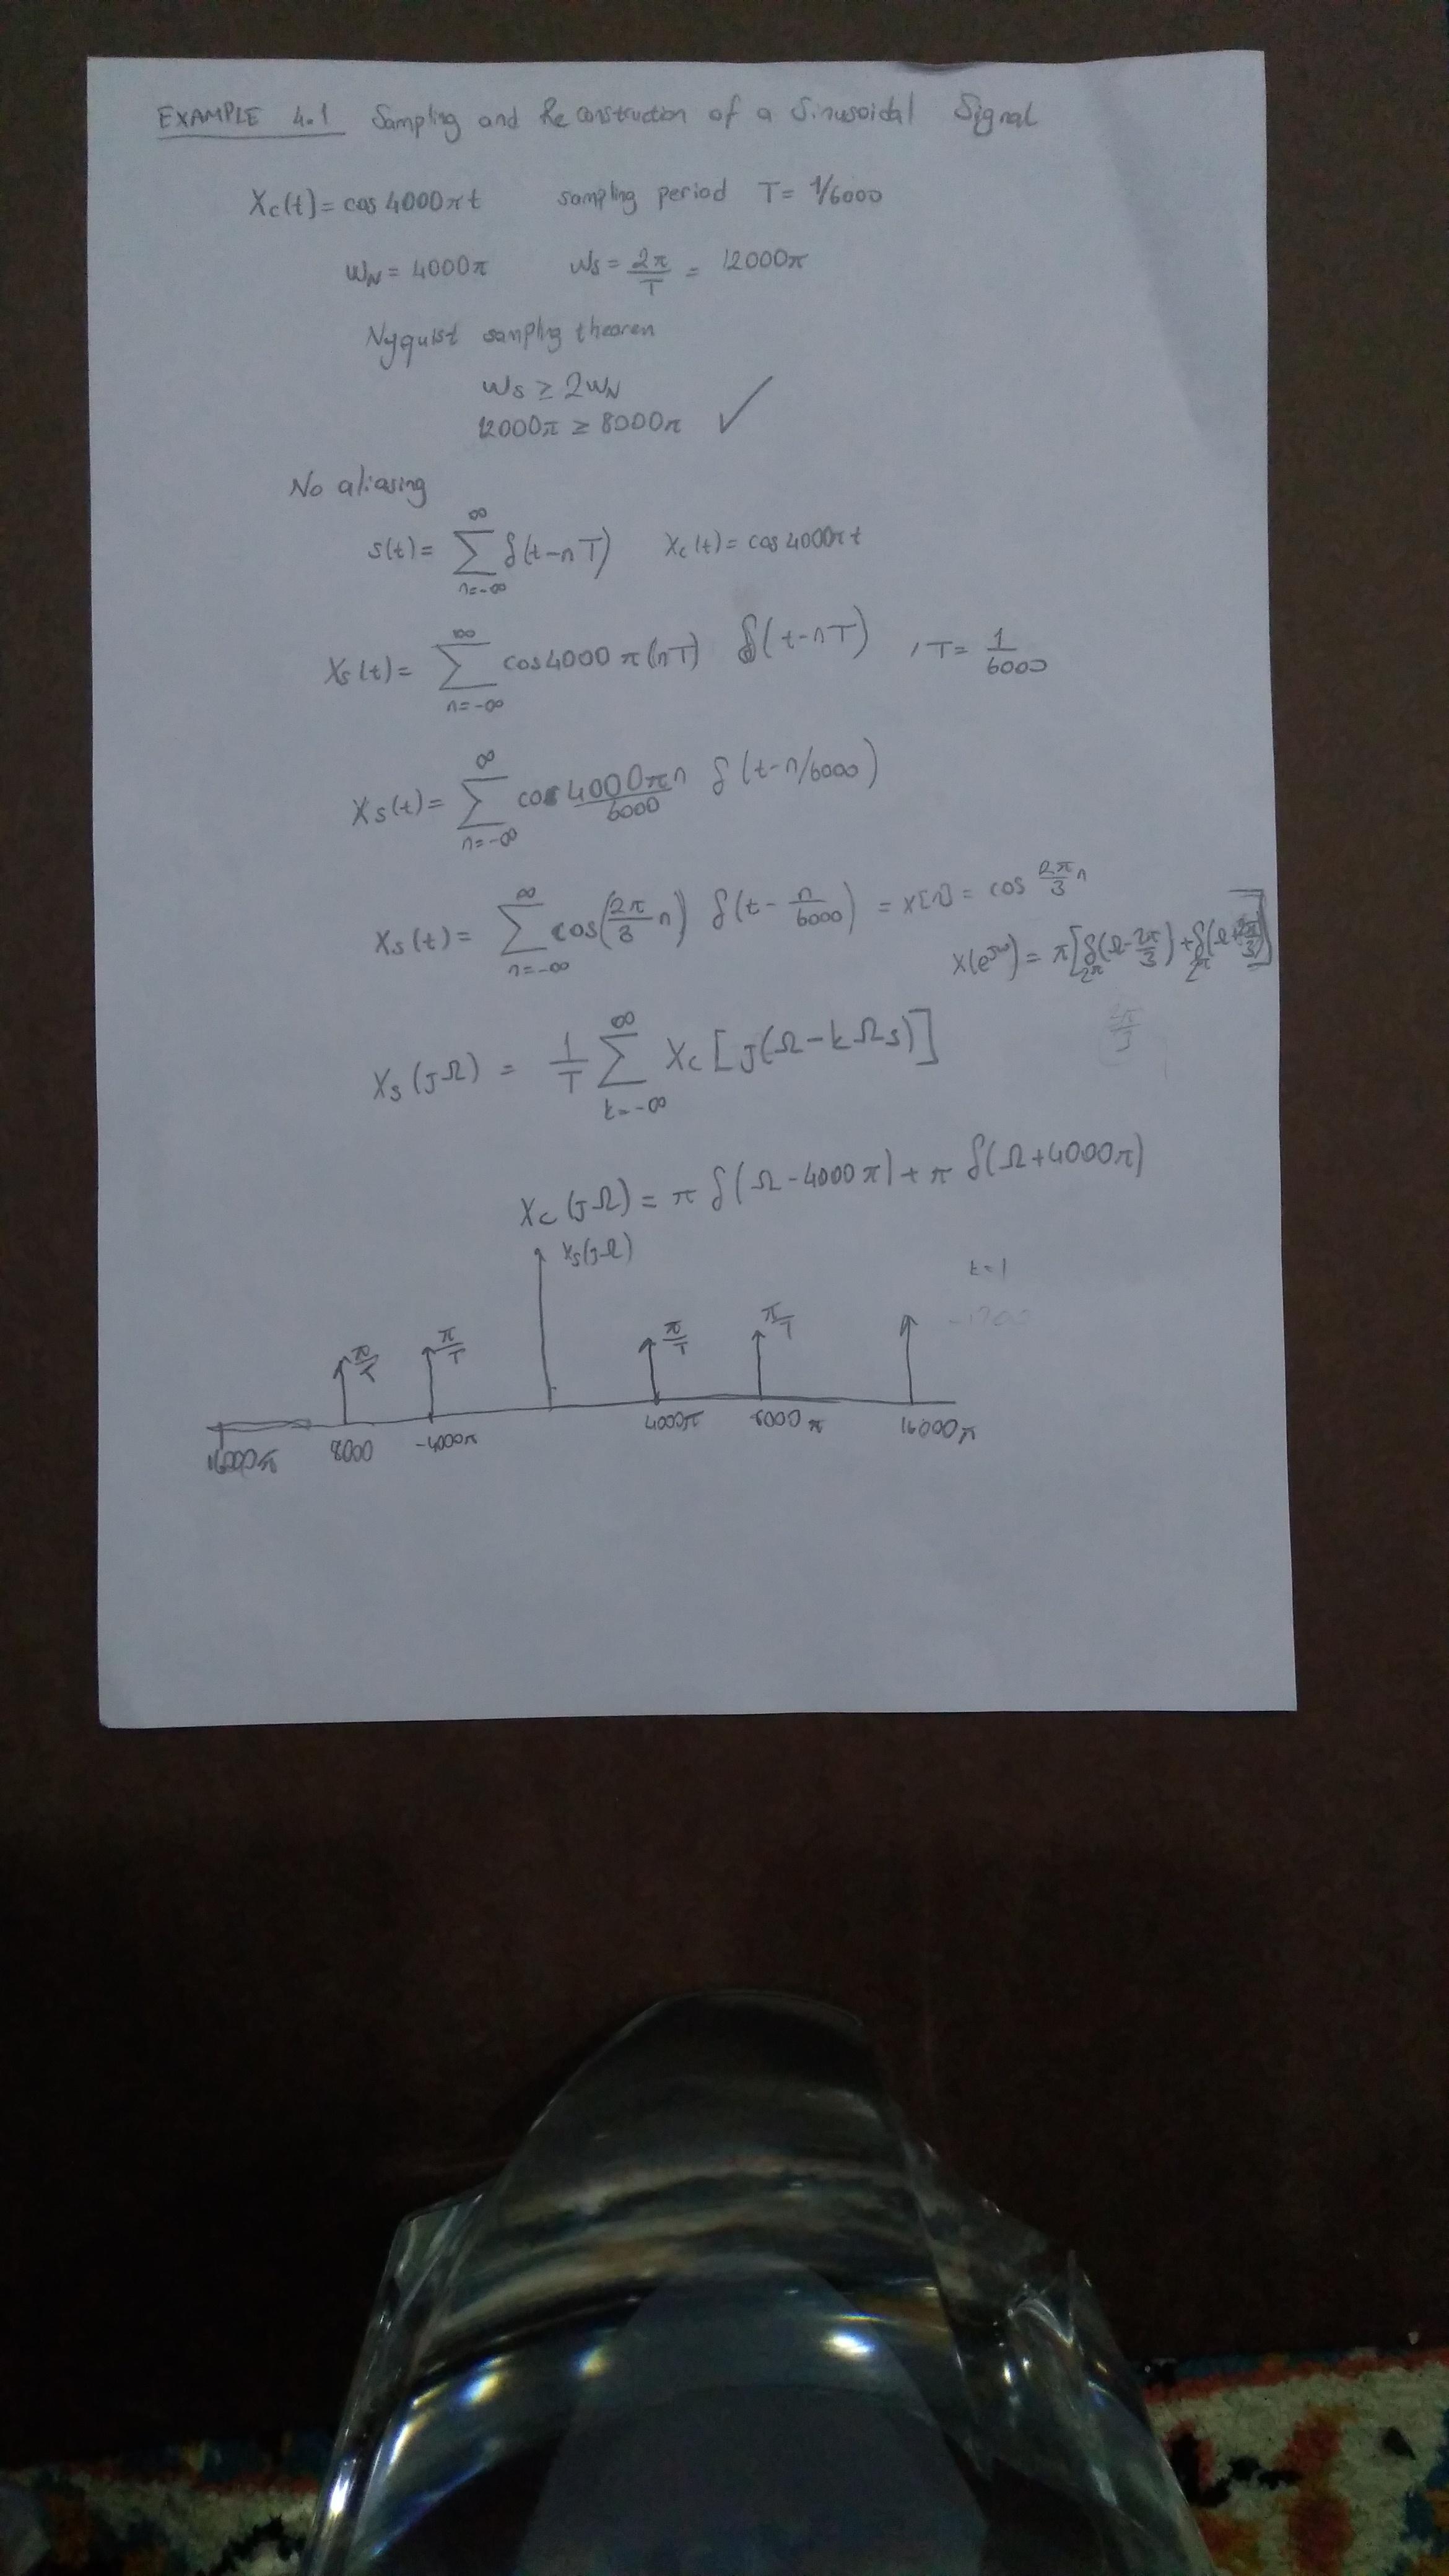 EXAMPLE 4.1 Sampling and Reconstruction of a Sinusoidal Signal
Xc(t) = cos 4000πt sampling period T = 1/6000
ωN = 4000π ωs = 2π/T = 12000π
Nyquist sampling theorem
ωs ≥ 2ωN
12000π ≥ 8000π ✓
No aliasing
s(t) = ∑_{n=-∞}^{∞} δ(t-nT) Xc(t) = cos 4000πt
Xs(t) = ∑_{n=-∞}^{∞} cos 4000π(nT) δ(t-nT) , T = 1/6000
Xs(t) = ∑_{n=-∞}^{∞} cos 4000πn/6000 δ(t-n/6000)
Xs(t) = ∑_{n=-∞}^{∞} cos(2π/3 n) δ(t - n/6000) = x[n] = cos 2π/3 n
X(e^{jω}) = π[δ_{2π}(Ω-2π/3) + δ_{2π}(Ω+2π/3)]
Xs(jΩ) = 1/T ∑_{k=-∞}^{∞} Xc[j(Ω-kΩs)]
Xc(jΩ) = π δ(Ω-4000π) + π δ(Ω+4000π)
Xs(jΩ)
k=1
π/T π/T π/T π/T
16000π 8000 -4000π 4000π 8000π 16000π